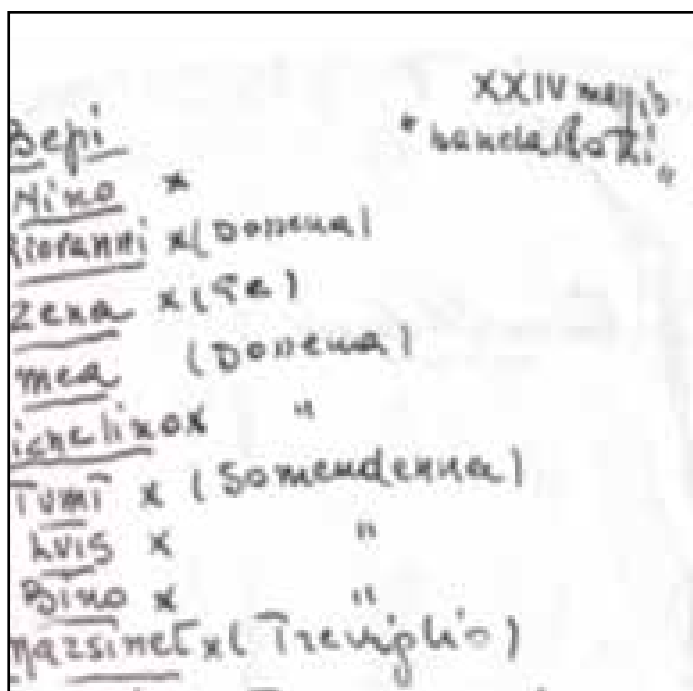 XXIV maggio
Bepi
"banda
Nino x
Giovanni x (Dossena)
Zena x (Ge)
mea (Dossena)
ichelino x "
Tumi x (Somendenna)
Luis x "
Bino x "
mazsinet x (Treviglio)